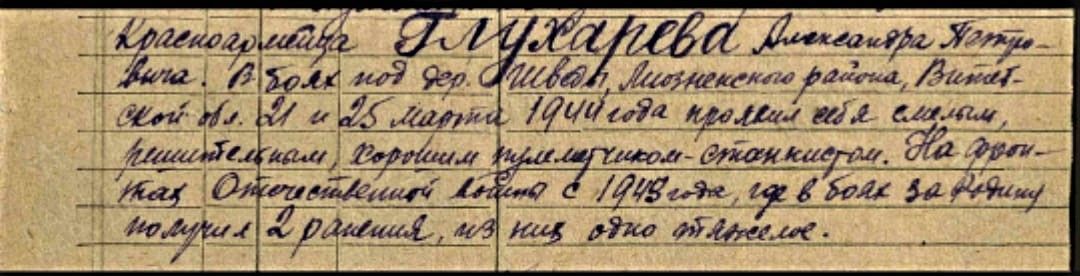 Красноармейца Глухарева Александра Петро-
вича. В боях под дер. Шведы, Лиозненского района, Витеб-
ской обл. 21 и 25 марта 1944 года проявил себя смелым,
решительным, хорошим пулеметчиком-станкистом. На фрон-
тах Отечественной войны с 1943 года, где в боях за Родину
получил 2 ранения, из них одно тяжелое.